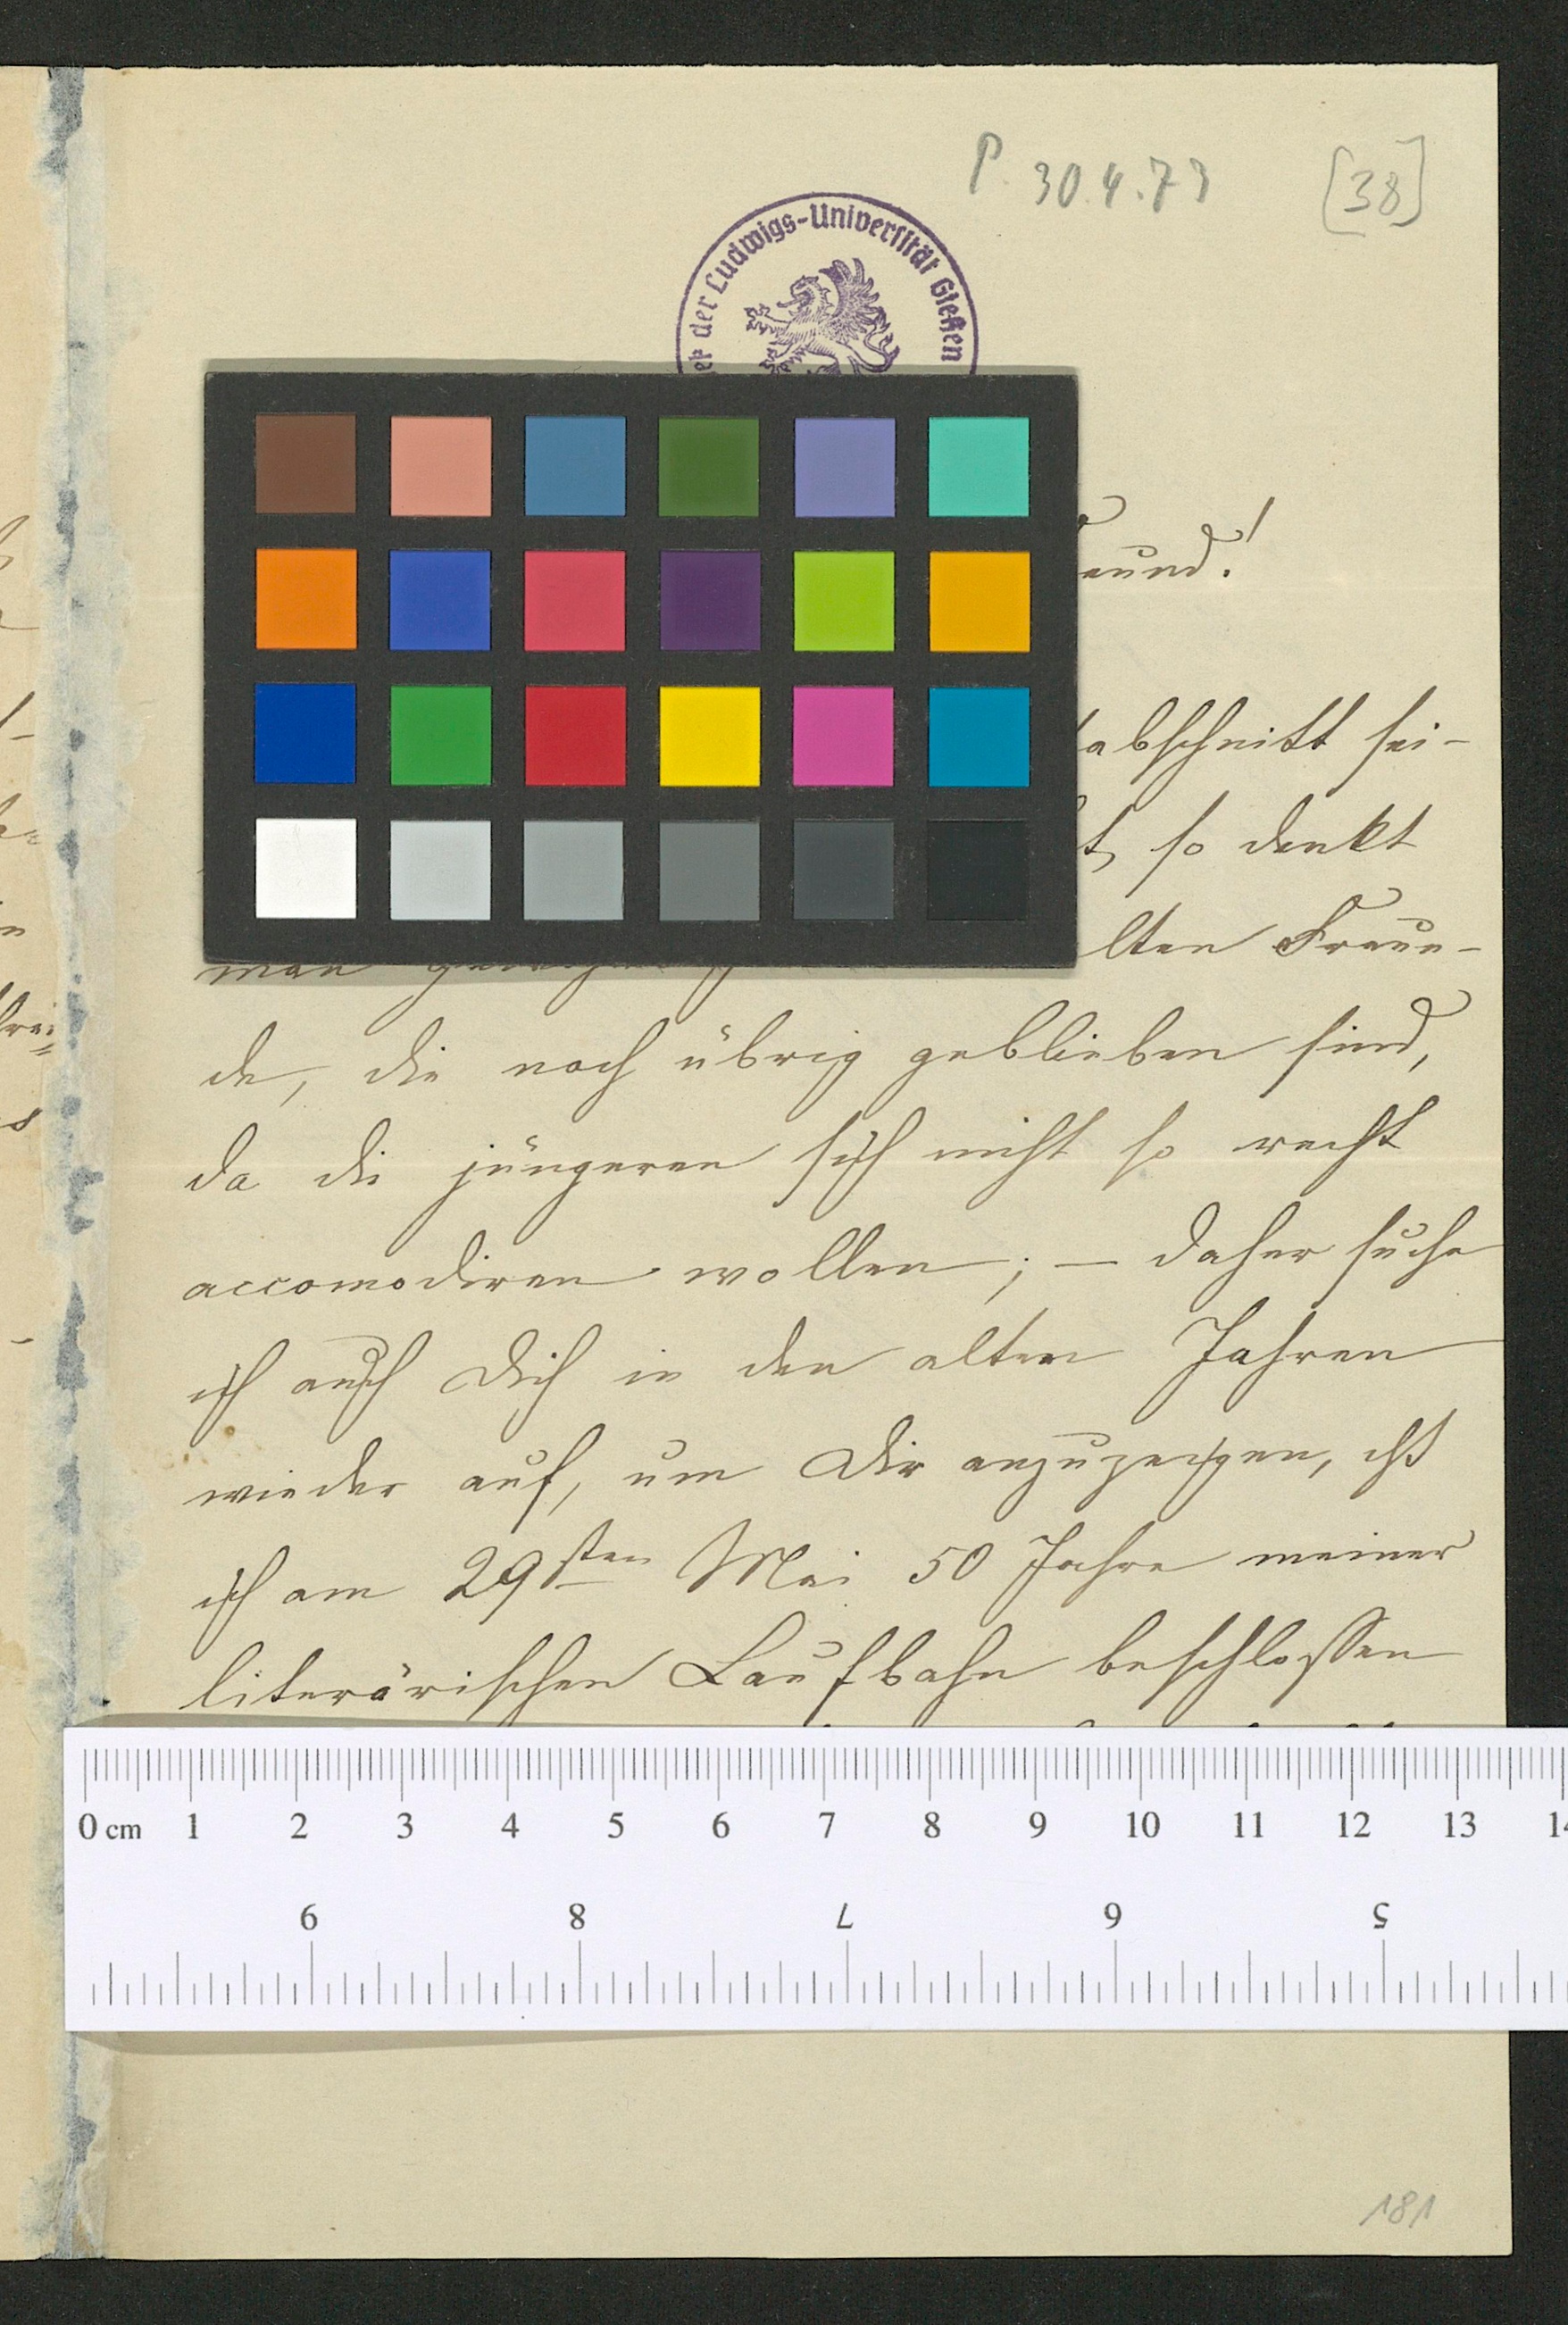 P. 30.4.73 [38]
der Ludwigs-Universität Gießen
eund!
abschnitt sei-
t, so denkt
man lten Freun-
de, die noch übrig geblieben sind,
da die jüngeren sich nicht so recht
accomodiren wollen; — daher suche
ich auch Dich in den alten Jahren
wieder auf, um Dir anzuzeigen, daß
ich am 29sten Mai 50 Jahre meiner
literärischen Laufbahn beschlossen
0 cm 1 2 3 4 5 6 7 8 9 10 11 12 13 14
9 8 7 6 5
181